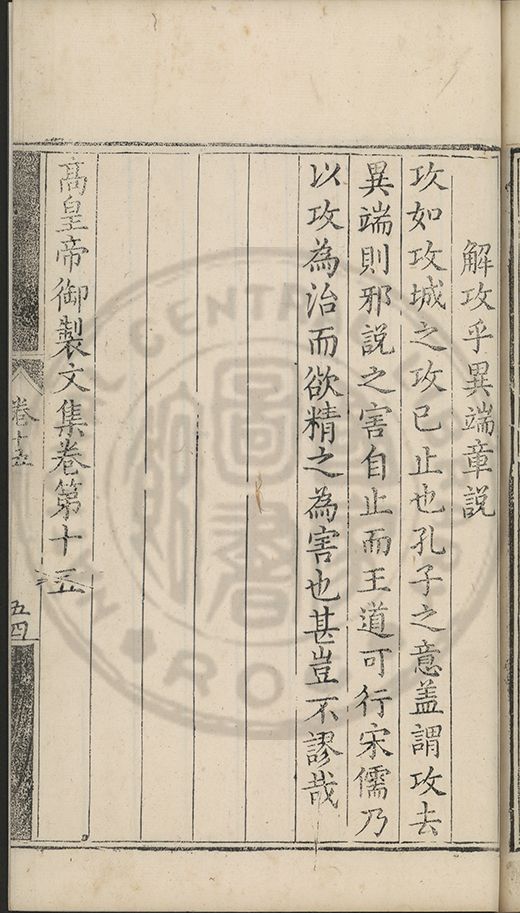 解攻乎異端章説
攻如攻城之攻已止也孔子之意盖謂攻去
異端則邪説之害自止而王道可行宋儒乃
以攻為治而欲精之為害也甚豈不謬哉
髙皇帝御製文集卷第十五
卷十五
五四